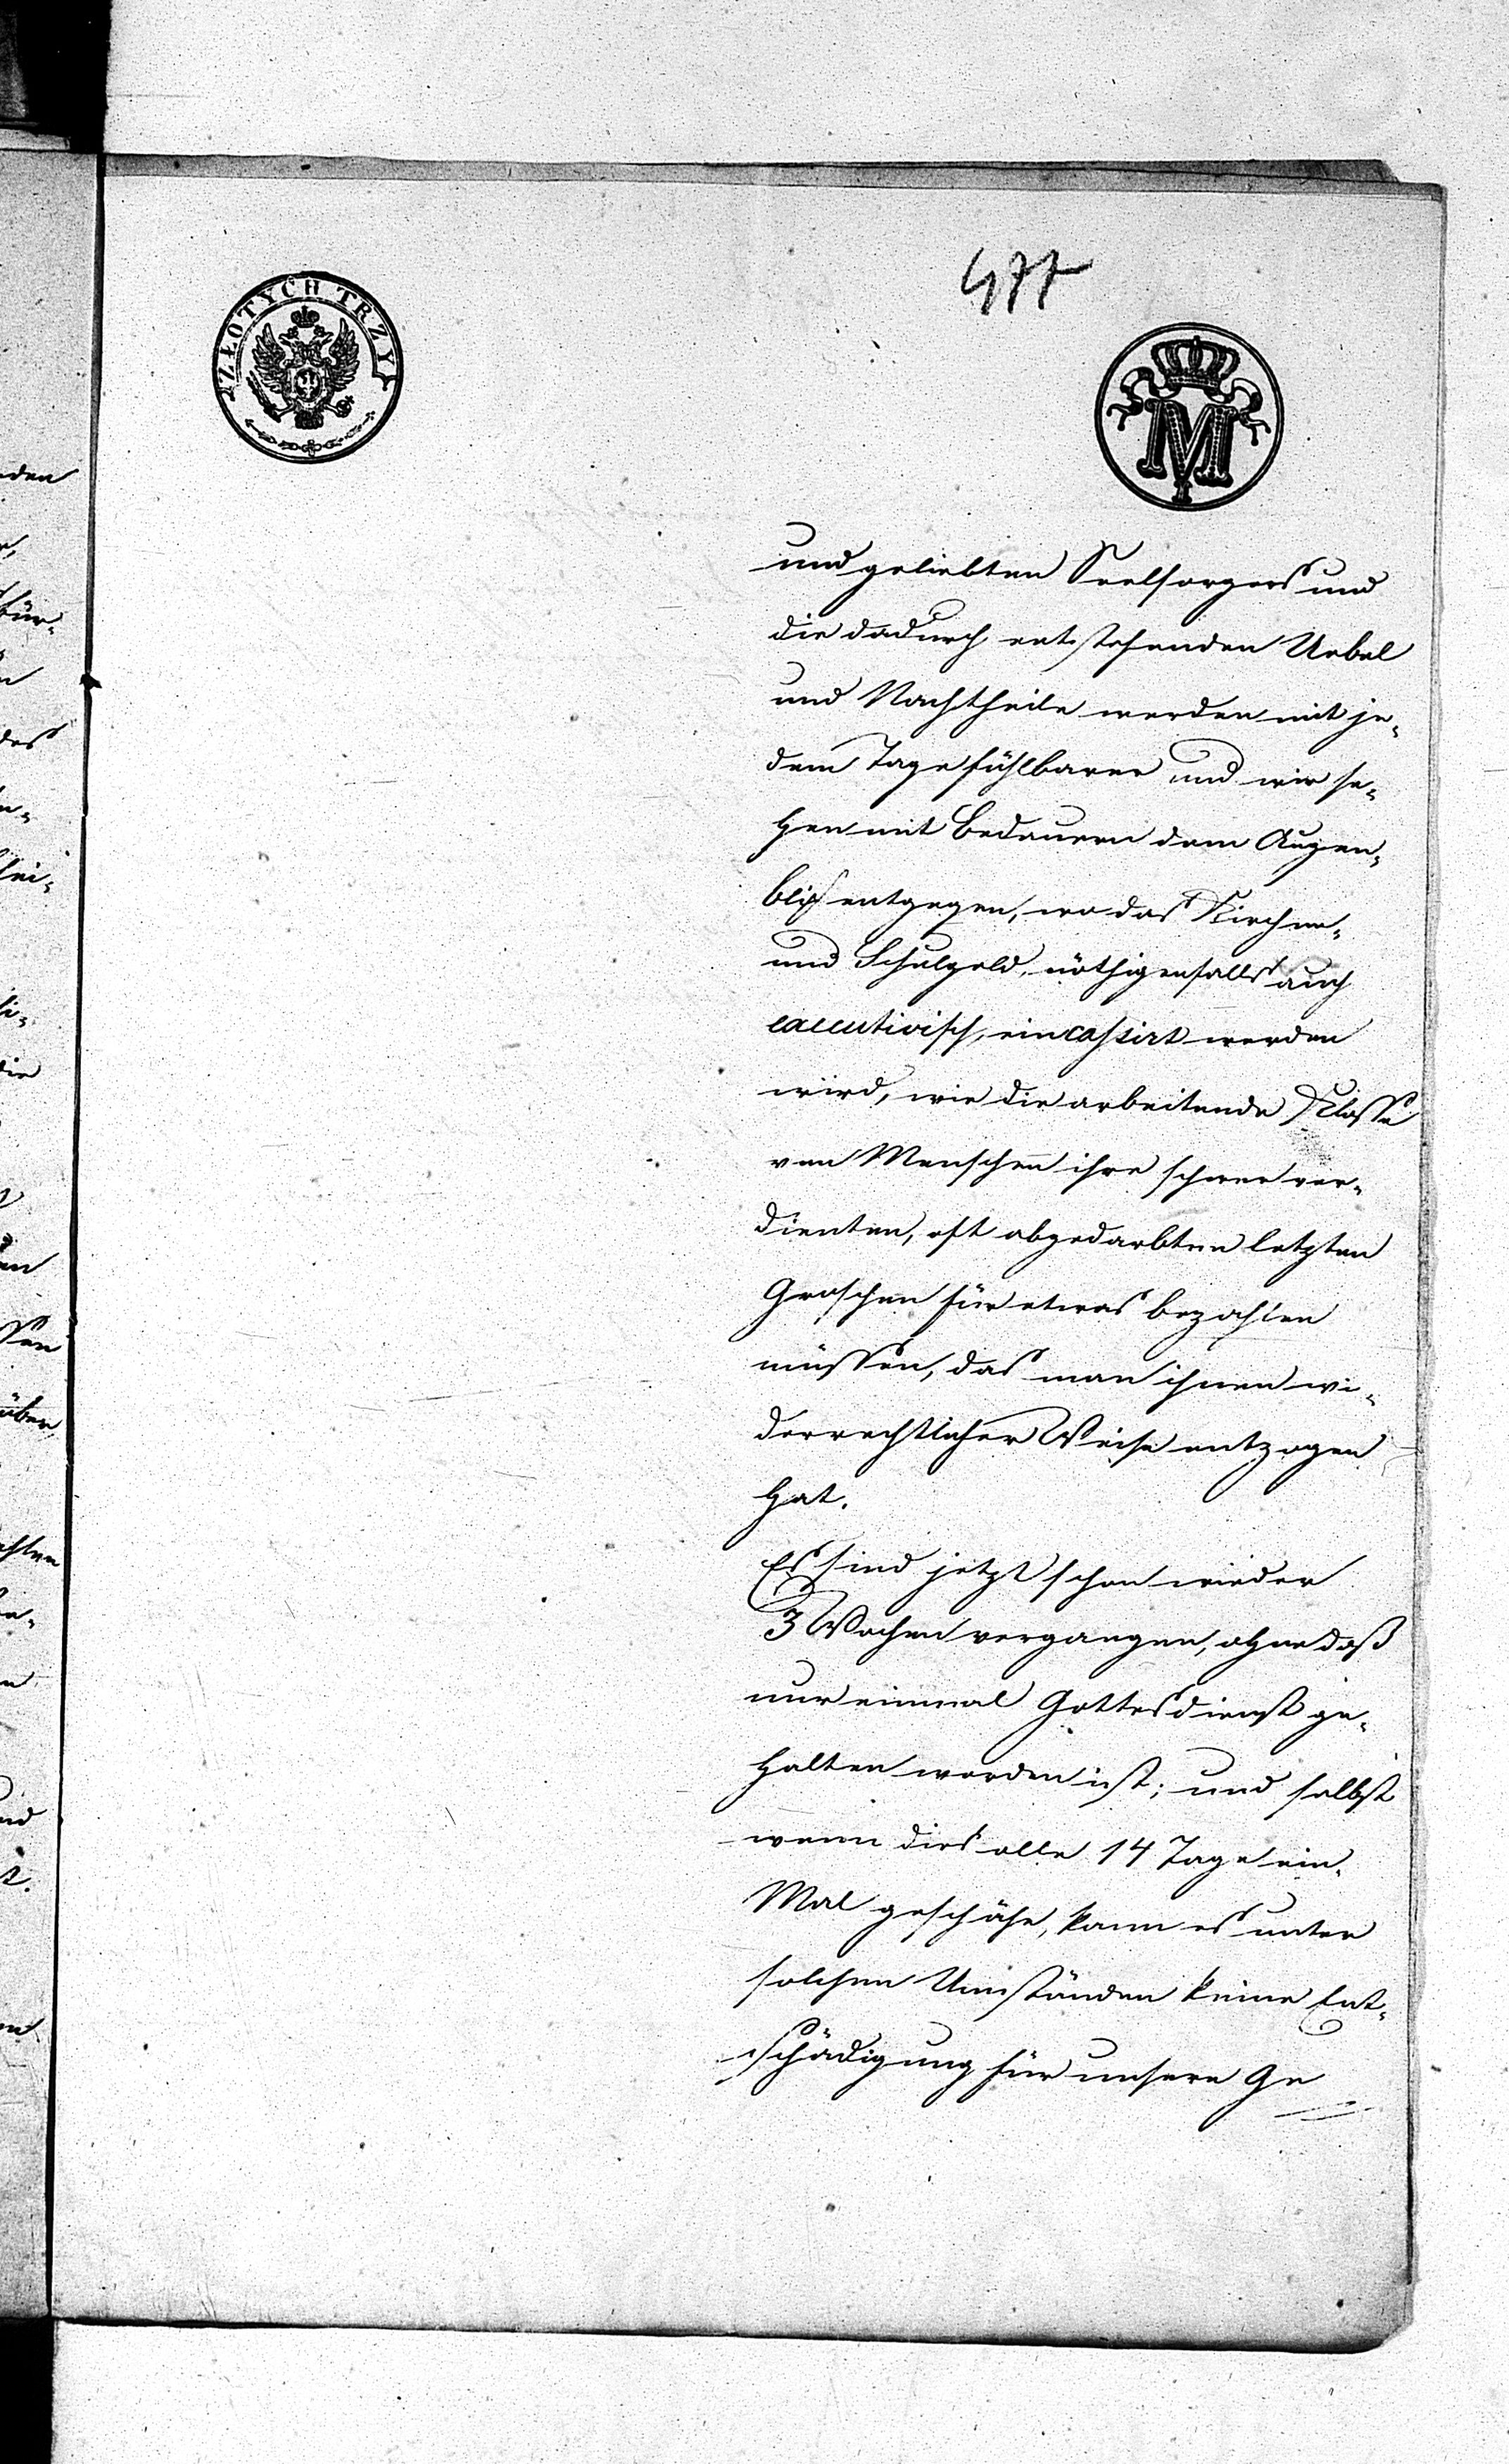 477
ZŁOTYCH TRZY
M
und geliebten Seelsorgers und
die dadurch entstehenden Uebel
und Nachtheile werden mit je-
dem Tage fühlbarer und wir se-
hen mit Bedauern dem Augen-
blick entgegen, wo das Kirchen-
und Schulgeld, nöthigenfalls auch
executivisch, eincassirt werden
wird, wie die arbeitende Klasse
von Menschen ihre schwer ver-
dienten, oft abgedarbten letzten
Groschen für etwas bezahlen
müssen, das man ihnen wi-
derrechtlicher Weise entzogen
hat.
Es sind jetzt schon wieder
3 Wochen vergangen, ohne daß
nur einmal Gottesdienst ge-
halten worden ist; und selbst
wenn dies alle 14 Tage ein-
Mal geschähe, kann es unter
solchen Umständen keine Ent-
schädigung für unsere Ge